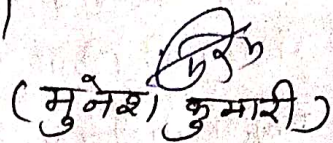 (मुनेश कुमारी)